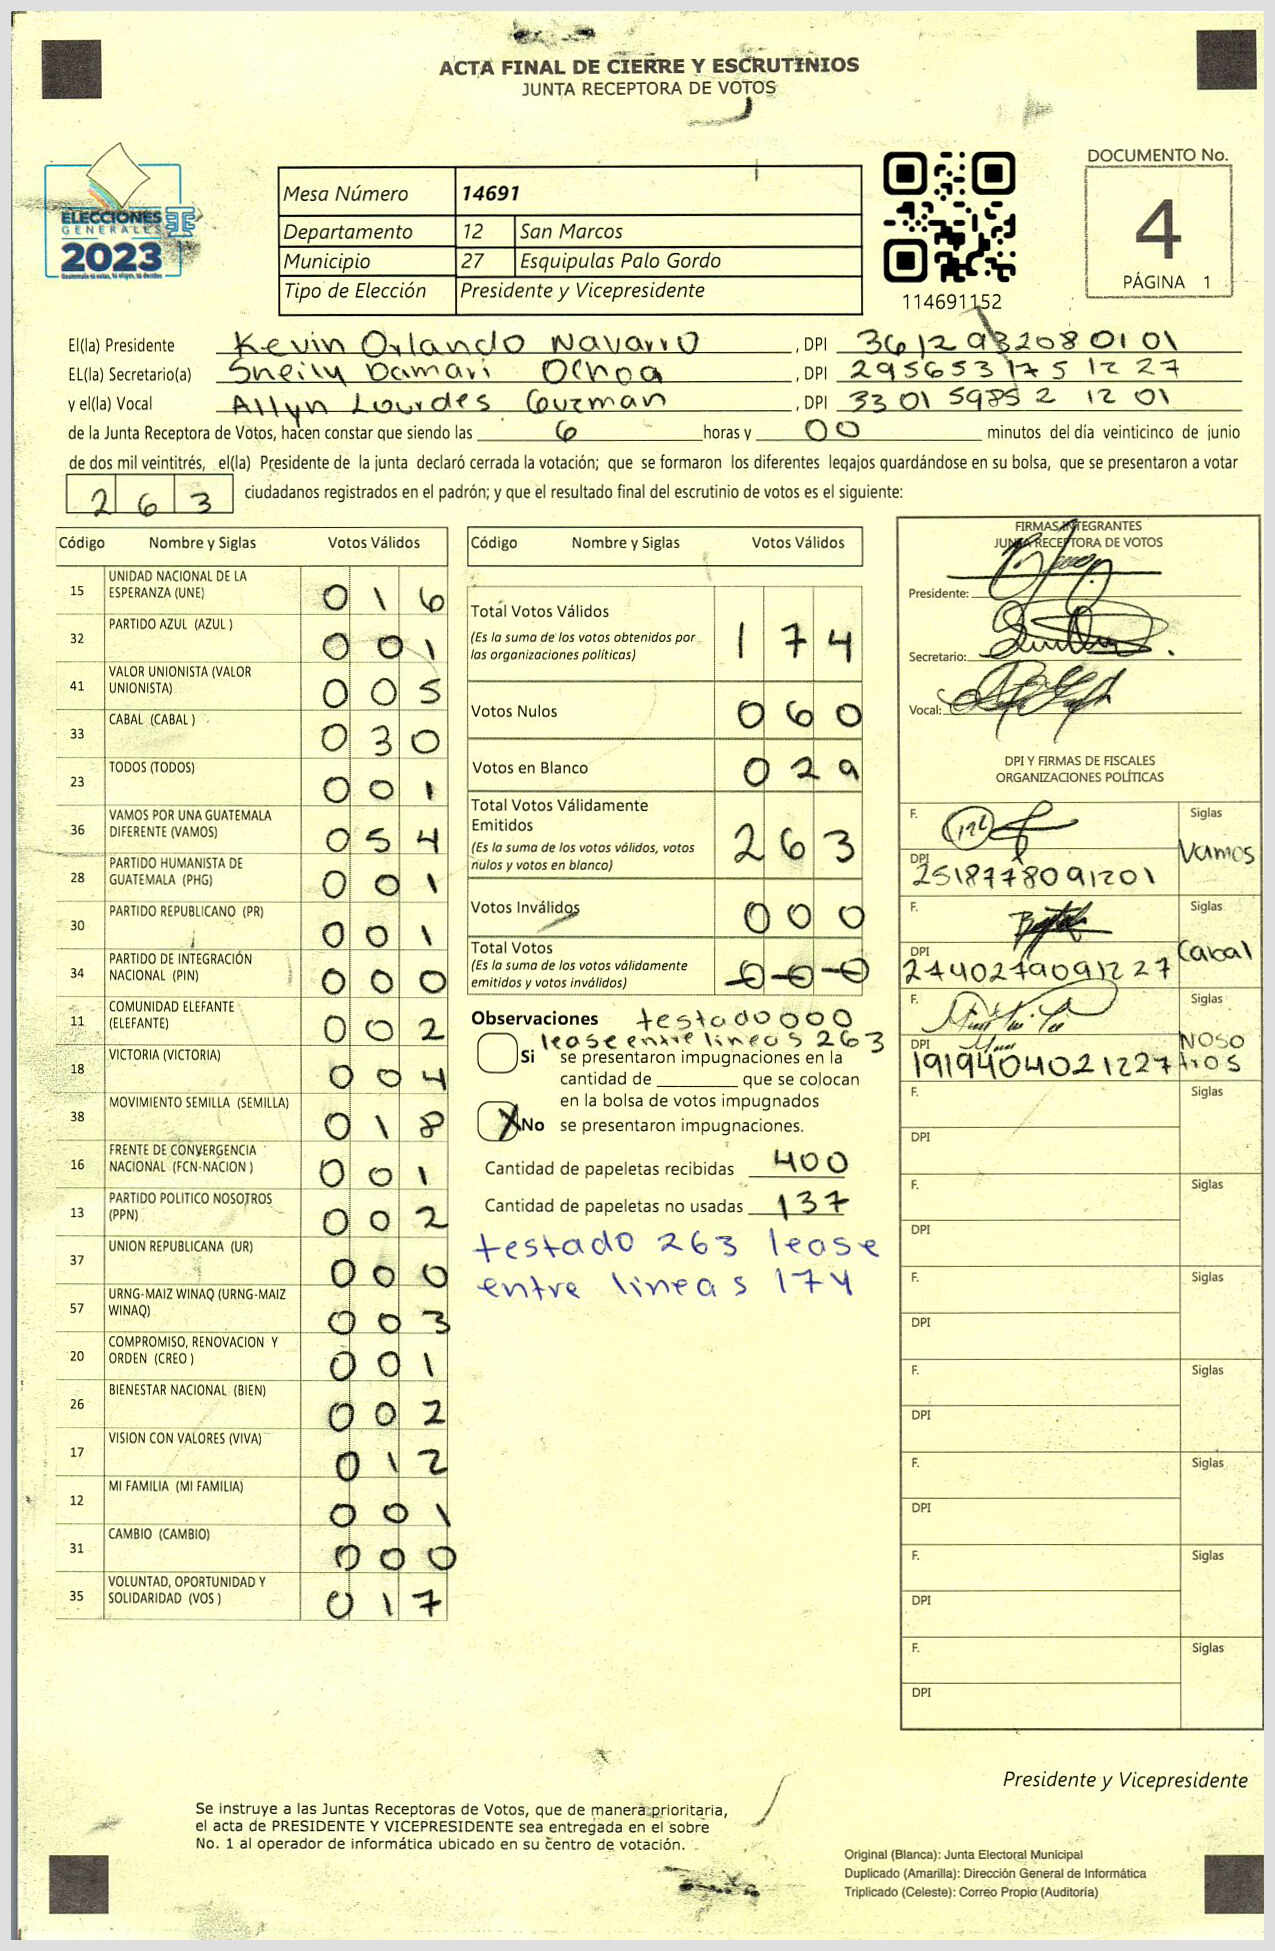 ACTA FINAL DE CIERRE Y ESCRUTINIOS
JUNTA RECEPTORA DE VOTOS
ELECCIONES
GENERALES
2023
Mesa Número 14691
Departamento 12 San Marcos
Municipio 27 Esquipulas Palo Gordo
Tipo de Elección Presidente y Vicepresidente
114691152
DOCUMENTO No.
4
PÁGINA 1
El(la) Presidente Kevin Orlando Navarro , DPI 3612982080101
EL(la) Secretario(a) Sheily Damari Ochoa , DPI 2956531751227
y el(la) Vocal Allyn Lourdes Guzman , DPI 3301598521201
de la Junta Receptora de Votos, hacen constar que siendo las 6 horas y 00 minutos del día veinticinco de junio
de dos mil veintitrés, el(la) Presidente de la junta declaró cerrada la votación; que se formaron los diferentes legajos quardándose en su bolsa, que se presentaron a votar
263 ciudadanos registrados en el padrón; y que el resultado final del escrutinio de votos es el siguiente:
Código Nombre y Siglas Votos Válidos
15 UNIDAD NACIONAL DE LA ESPERANZA (UNE) 016
32 PARTIDO AZUL (AZUL ) 001
41 VALOR UNIONISTA (VALOR UNIONISTA) 005
33 CABAL (CABAL ) 030
23 TODOS (TODOS) 001
36 VAMOS POR UNA GUATEMALA DIFERENTE (VAMOS) 054
28 PARTIDO HUMANISTA DE GUATEMALA (PHG) 001
30 PARTIDO REPUBLICANO (PR) 001
34 PARTIDO DE INTEGRACIÓN NACIONAL (PIN) 000
11 COMUNIDAD ELEFANTE (ELEFANTE) 002
18 VICTORIA (VICTORIA) 004
38 MOVIMIENTO SEMILLA (SEMILLA) 018
16 FRENTE DE CONVERGENCIA NACIONAL (FCN-NACION ) 001
13 PARTIDO POLITICO NOSOTROS (PPN) 002
37 UNION REPUBLICANA (UR) 000
57 URNG-MAIZ WINAQ (URNG-MAIZ WINAQ) 003
20 COMPROMISO, RENOVACION Y ORDEN (CREO ) 001
26 BIENESTAR NACIONAL (BIEN) 002
17 VISION CON VALORES (VIVA) 012
12 MI FAMILIA (MI FAMILIA) 001
31 CAMBIO (CAMBIO) 000
35 VOLUNTAD, OPORTUNIDAD Y SOLIDARIDAD (VOS ) 017
Código Nombre y Siglas Votos Válidos
Total Votos Válidos 174
(Es la suma de los votos obtenidos por
las organizaciones políticas)
Votos Nulos 060
Votos en Blanco 029
Total Votos Válidamente
Emitidos 263
(Es la suma de los votos válidos, votos
nulos y votos en blanco)
Votos Inválidos 000
Total Votos 000
(Es la suma de los votos válidamente
emitidos y votos inválidos)
Observaciones testado 000
lease entre lineas 263
Si se presentaron impugnaciones en la
cantidad de ________ que se colocan
en la bolsa de votos impugnados
X No se presentaron impugnaciones.
Cantidad de papeletas recibidas 400
Cantidad de papeletas no usadas 137
testado 263 lease
entre lineas 174
FIRMAS INTEGRANTES
JUNTA RECEPTORA DE VOTOS
Presidente:
Secretario:
Vocal:
DPI Y FIRMAS DE FISCALES
ORGANIZACIONES POLÍTICAS
F. Siglas Vamos
DPI 2518778091201
F. Siglas Cabal
DPI 2740279091227
F. Siglas NOSO
tros
DPI 1919404021227
F. Siglas
DPI
F. Siglas
DPI
F. Siglas
DPI
F. Siglas
DPI
F. Siglas
DPI
F. Siglas
DPI
F. Siglas
DPI
Presidente y Vicepresidente
Se instruye a las Juntas Receptoras de Votos, que de manera prioritaria,
el acta de PRESIDENTE Y VICEPRESIDENTE sea entregada en el sobre
No. 1 al operador de informática ubicado en su centro de votación.
Original (Blanca): Junta Electoral Municipal
Duplicado (Amarilla): Dirección General de Informática
Triplicado (Celeste): Correo Propio (Auditoría)